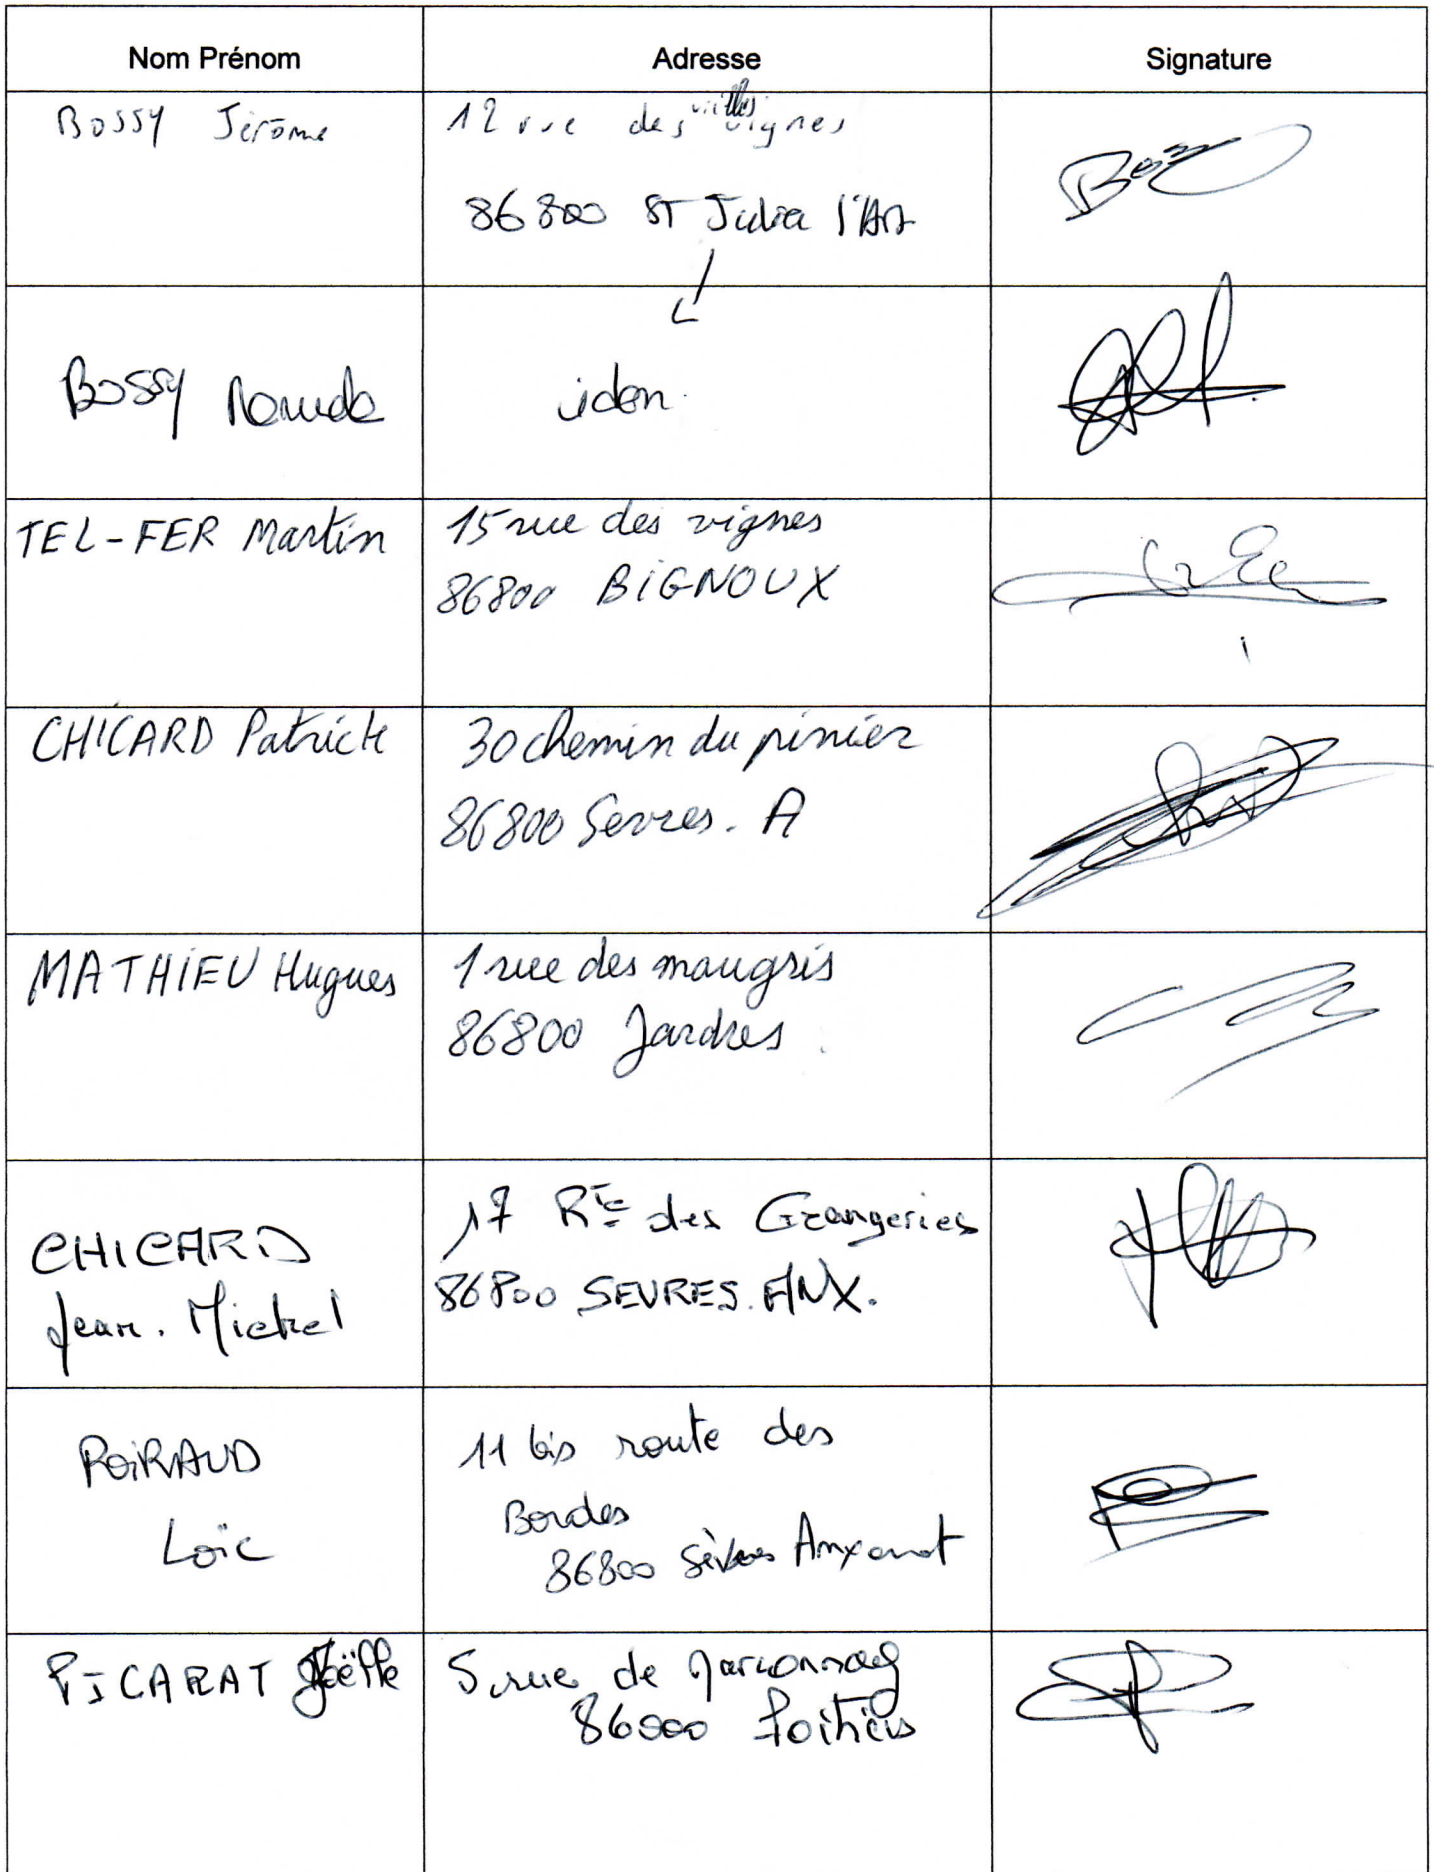 Nom Prénom
Adresse
Signature
BOSSY Jérôme
12 rue des vieilles vignes
86800 ST Julien l'Ars
BOSSY
idem.
TEL-FER Martin
15 rue des vignes
86800 BIGNOUX
CHICARD Patrick
30 chemin du pinier
86800 Sevres. A
MATHIEU Hugues
1 rue des maugris
86800 Jardres
CHICARD
Jean. Michel
17 Rte des Grangeries
86800 SEVRES. ANX.
POIRAUD
Loïc
11 bis route des
Bordes
86800 Sèvres Anxaumont
PICARAT Joëlle
5 rue de
86000 Poitiers